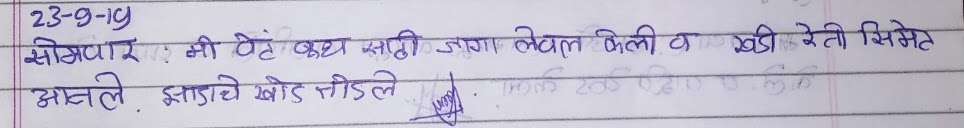 23-9-19
सोमवार : मी पेटं कथ साठी जागा लेवल केली व खडी रेती सिमेट
आनले. झाडाचे खोड तोडले